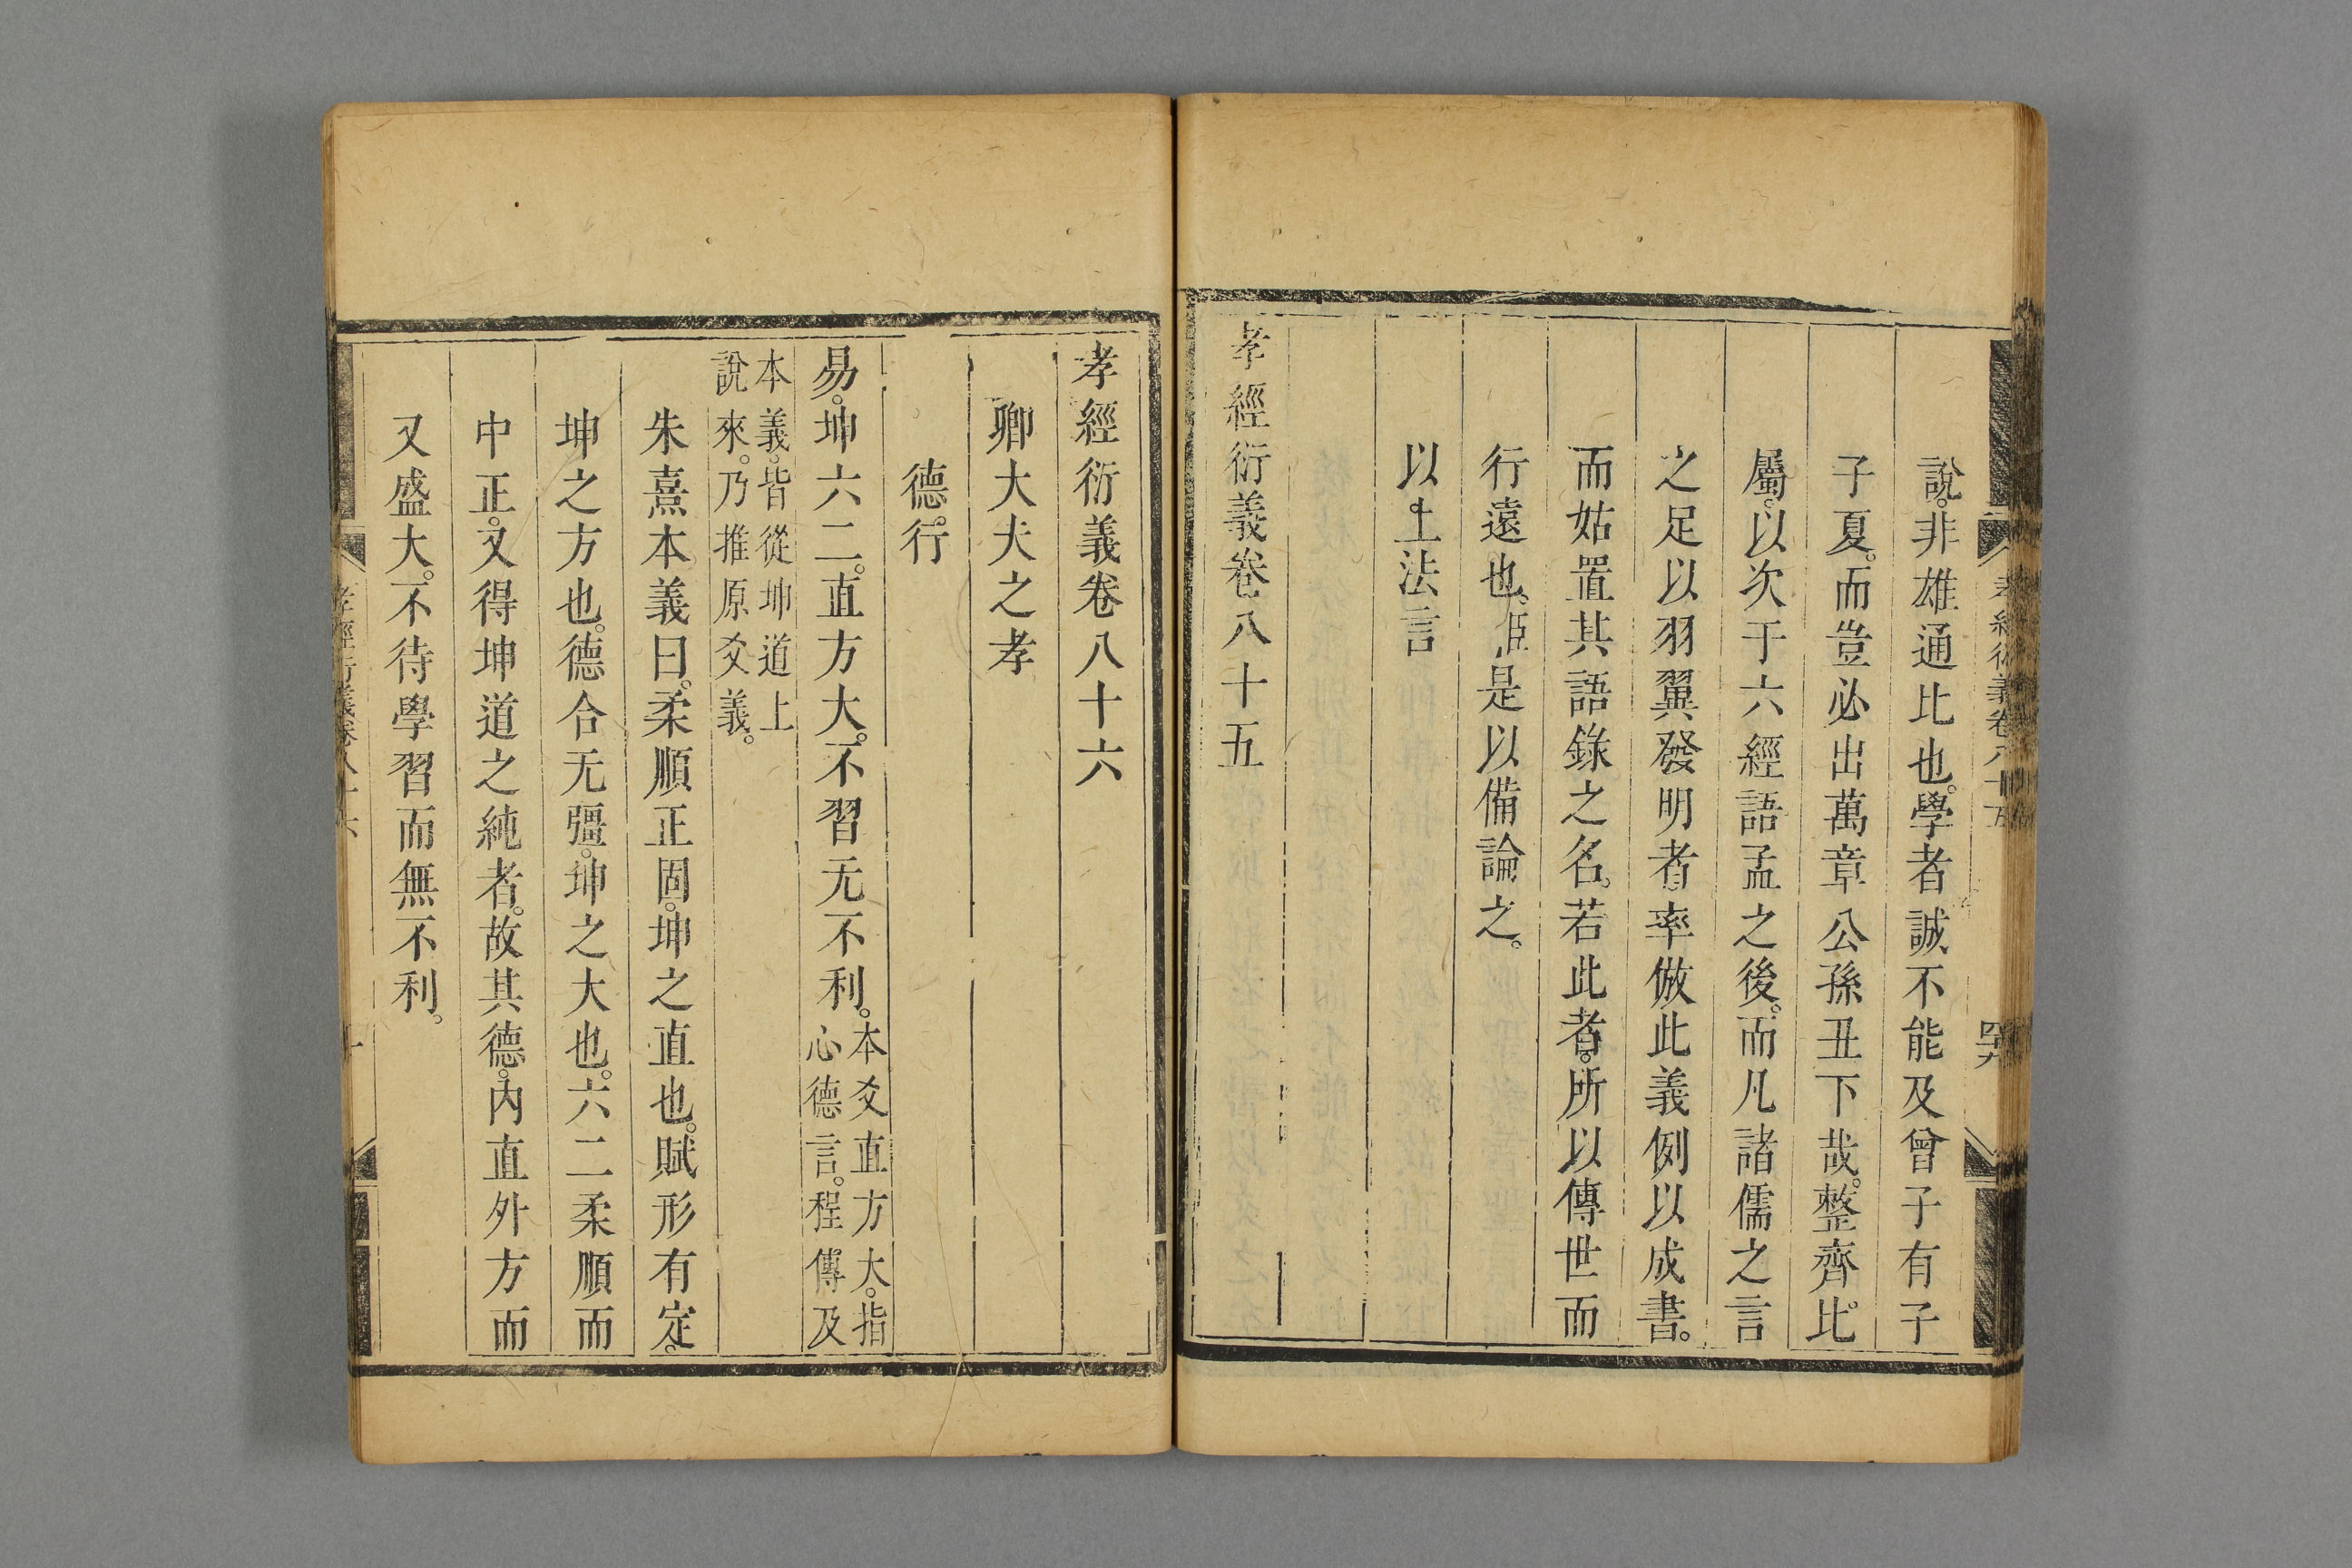 說。非雄通比也。學者誠不能及曾子有子
子夏。而豈必出萬章公孫丑下哉。整齊比
屬。以次于六經語孟之後。而凡諸儒之言
之足以羽翼發明者率倣此義例以成書。
而姑置其語錄之名。若此者。所以傳世而
行遠也。臣是以備論之。
以上法言
孝經衍義卷八十五
孝經衍義卷八十六
卿大夫之孝
德。行
易。坤六二。直方大。不習无不利。本爻直方大。指
心德言。程傳及
本義。皆從坤道上
說來。乃推原爻義。
朱熹本義曰。柔順正固。坤之直也。賦形有定。
坤之方也。德合无彊。坤之大也。六二柔順而
中正。又得坤道之純者。故其德。內直外方而
又盛大。不待學習而無不利。